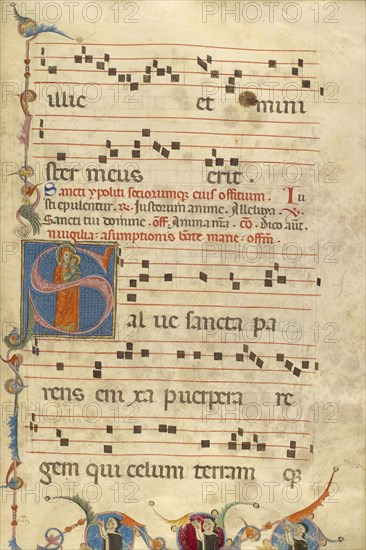 illic et mini
ster meus erit.
Sancti ypoliti sociorumque eius offitium. Iu
sti epulentur. Justorum anime. Alleluya.
Sancti tui domine. off. Anima nra. co. Dico aut.
in uigilia asumptionis bate marie. offm.
Sal ue sancta pa
rens eni xa puerpera re
gem qui celum terram q3